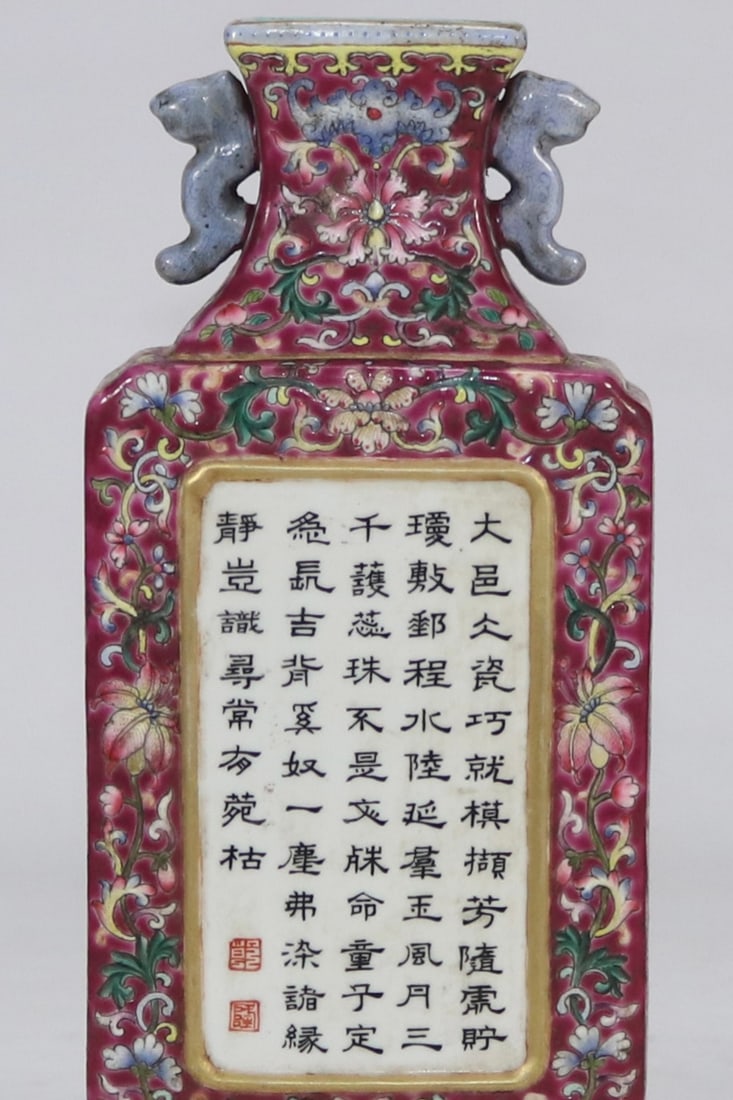 大邑仌瓷巧就模擷芳隨處貯
瓊敷郵程水陸延羣玉風月三
千護蕊珠不是文殊命童子定
為長吉背奚奴一塵弗染諸緣
靜豈識尋常有菀枯
乾
隆